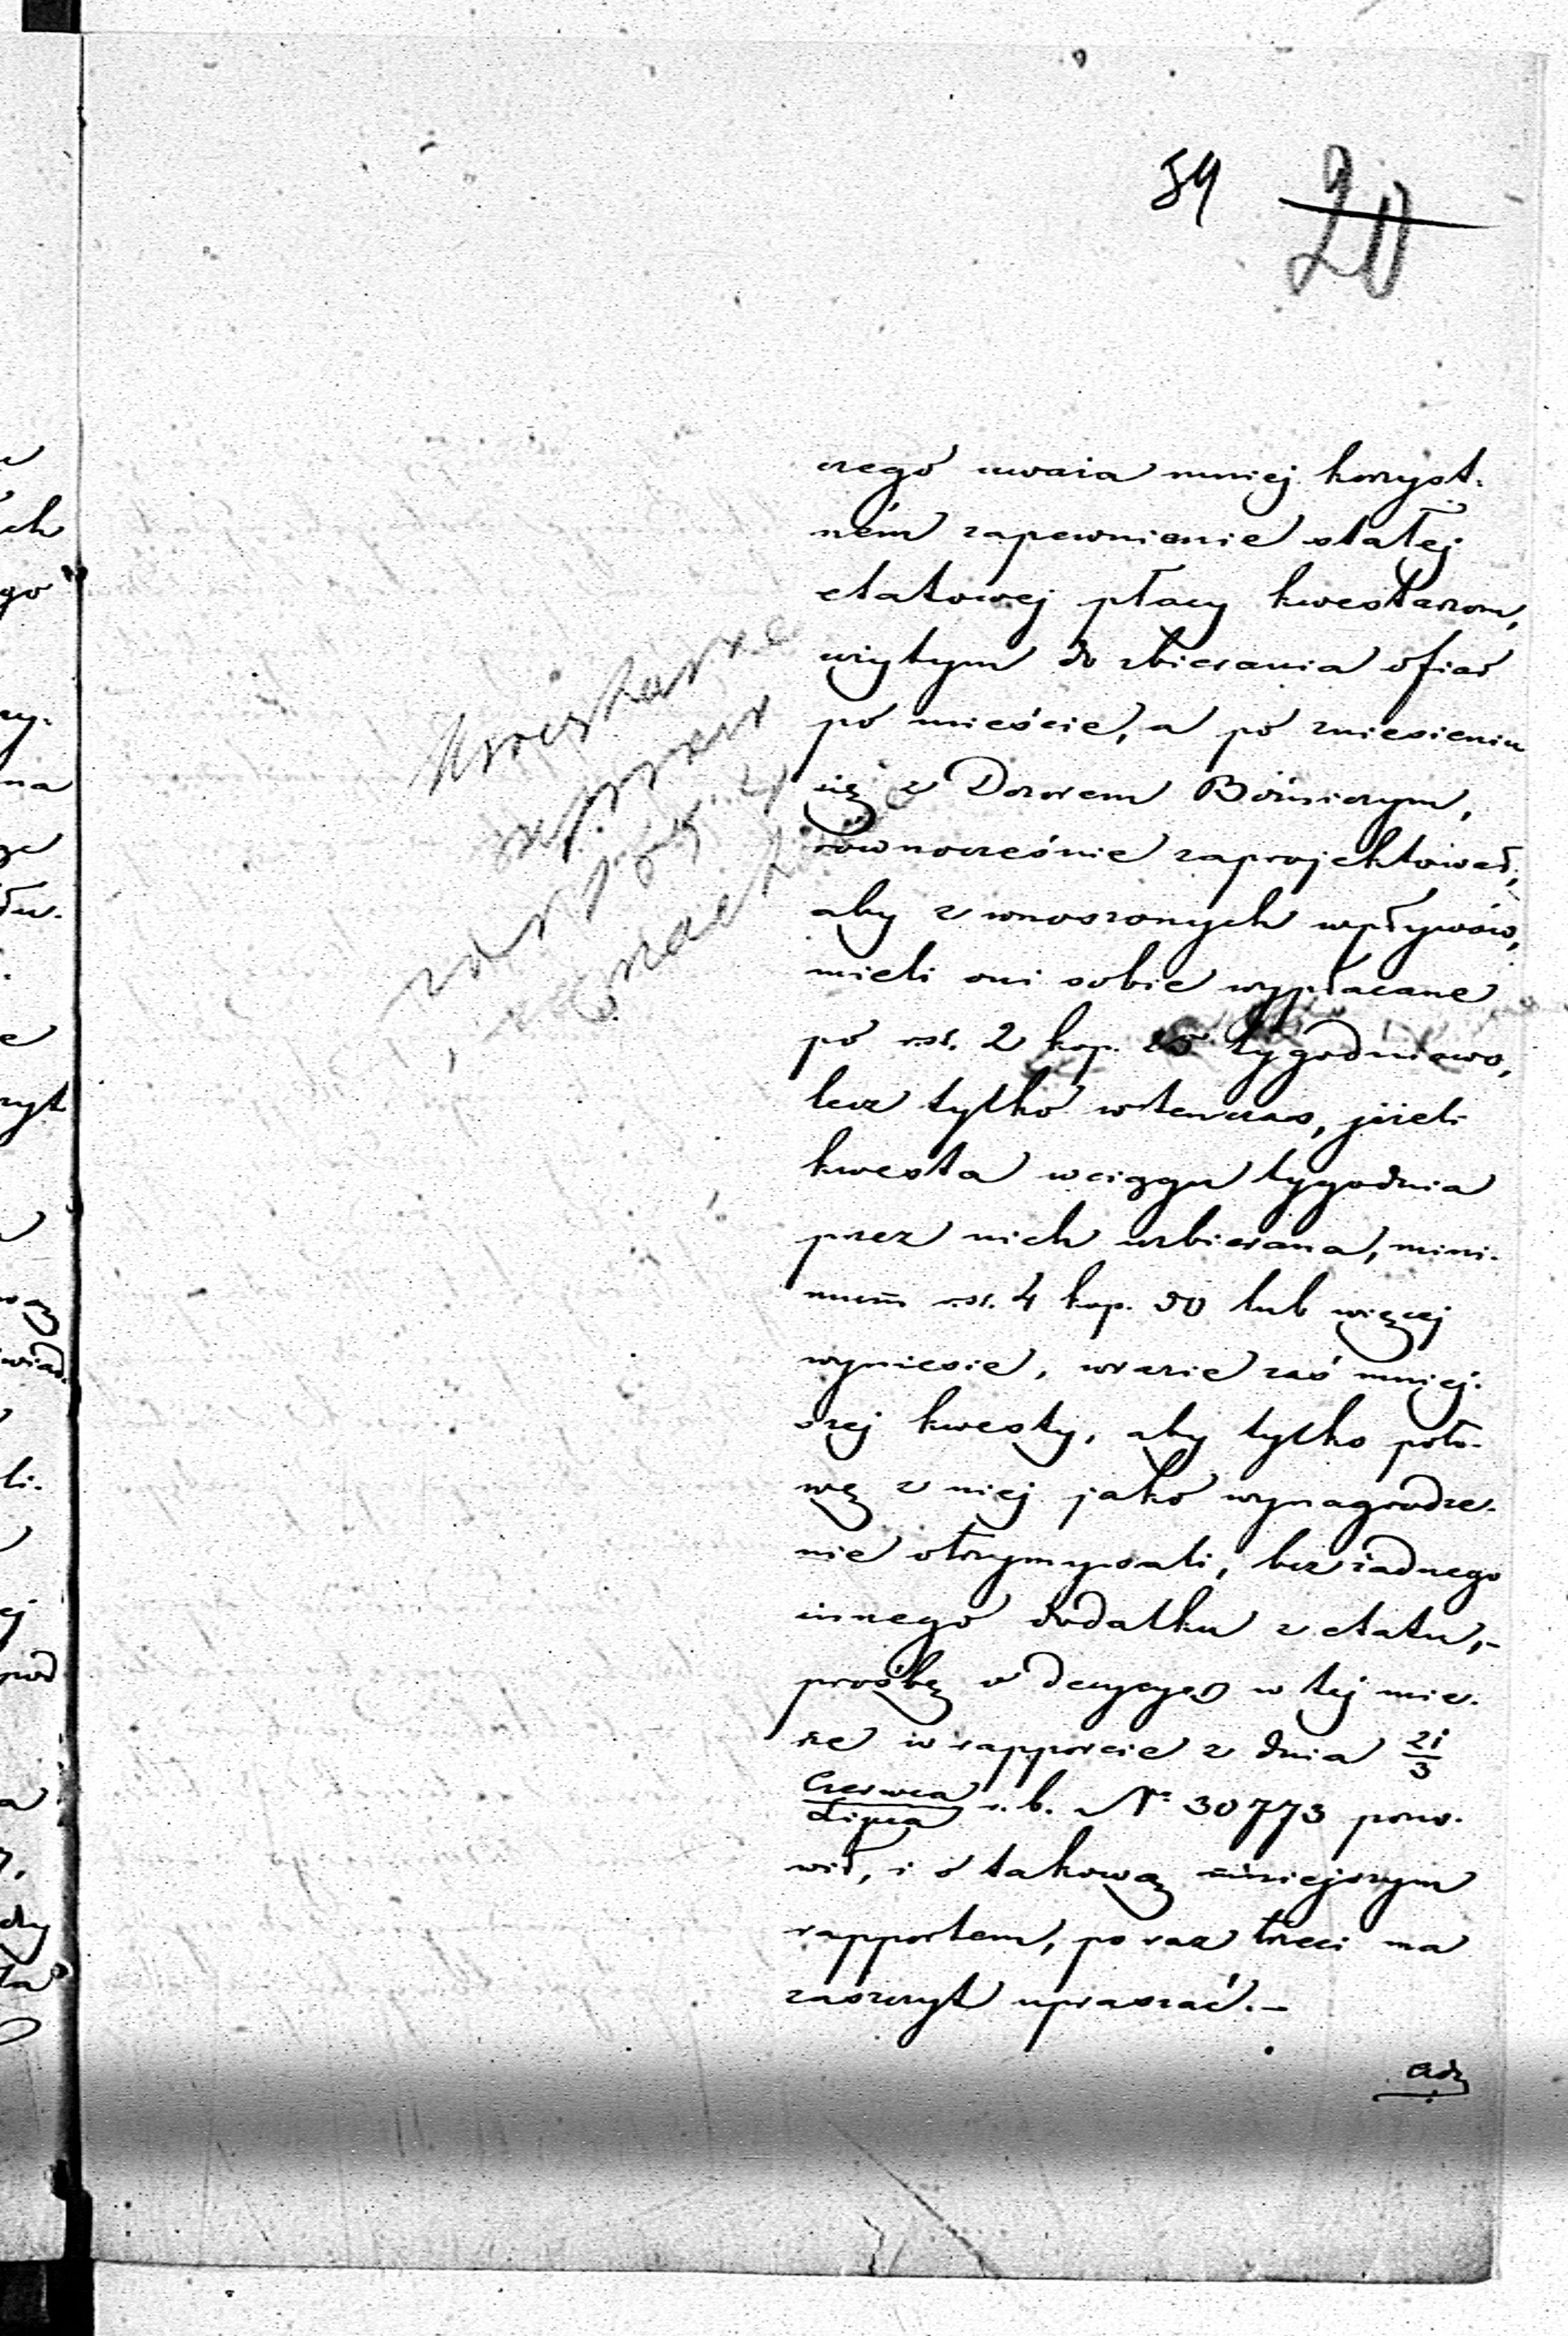 59 20
czego uważa mniej korzyst-
ném zapewnienie stałej
etatowej płacy kwestarzom,
użytym do zbierania ofiar
po mieście, a po zniesieniu
się z Dozorem Bóżniczym,
równocześnie zaprojektował,
aby z wnoszonych wpływów,
mieli oni sobie wypłacane
po rsr. 2 kop. 25 tygodniowo,
lecz tylko wtenczas, jeżeli
kwesta wciągu tygodnia
przez nich uzbierana, mini-
mum rsr. 4 kop. 50 lub więcej
wyniesie, wrazie zaś mniej-
szej kwesty, aby tylko poło-
wę z niej jako wynagrodze-
nie otrzymywali, bez żadnego
innego dodatku z etatu,-
prośbę o decyzyę w tej mie-
rze w rapporcie z dnia 21/3
Czerwca/Lipca r. b. Nr 30773 pono-
wił, i o takową niniejszym
rapportem, po raz trzeci ma
zaszczyt upraszać.-
Kwestarze